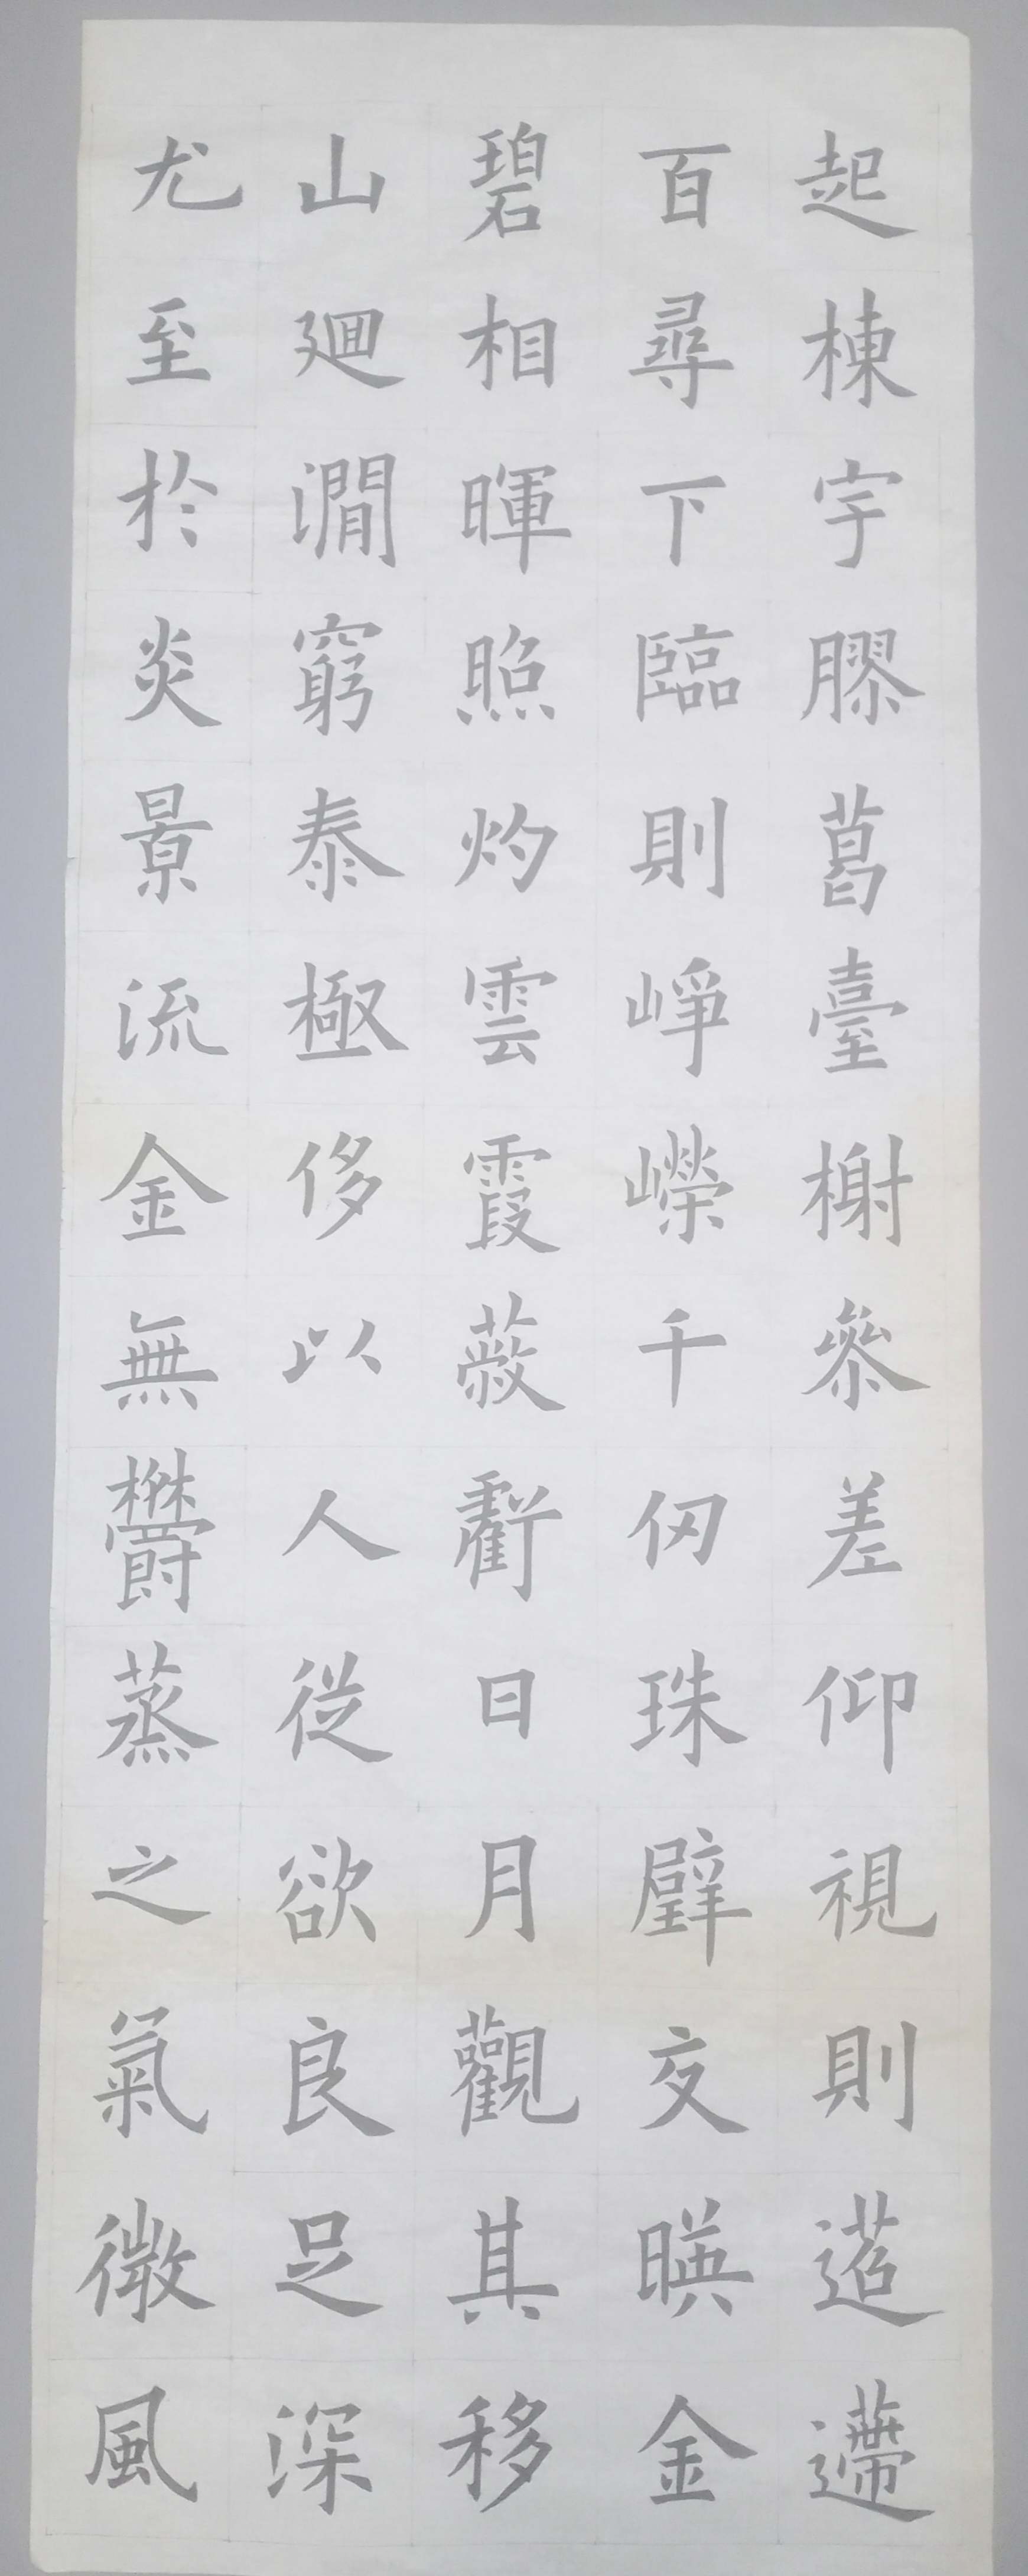 起棟宇膠葛臺榭叅差仰視則迢遰
百尋下臨則崢嶸千仞珠壁交暎金
碧相暉照灼雲霞蔽虧日月觀其移
山廻澗窮泰極侈以人從欲良足深
尤至於炎景流金無鬱蒸之氣微風